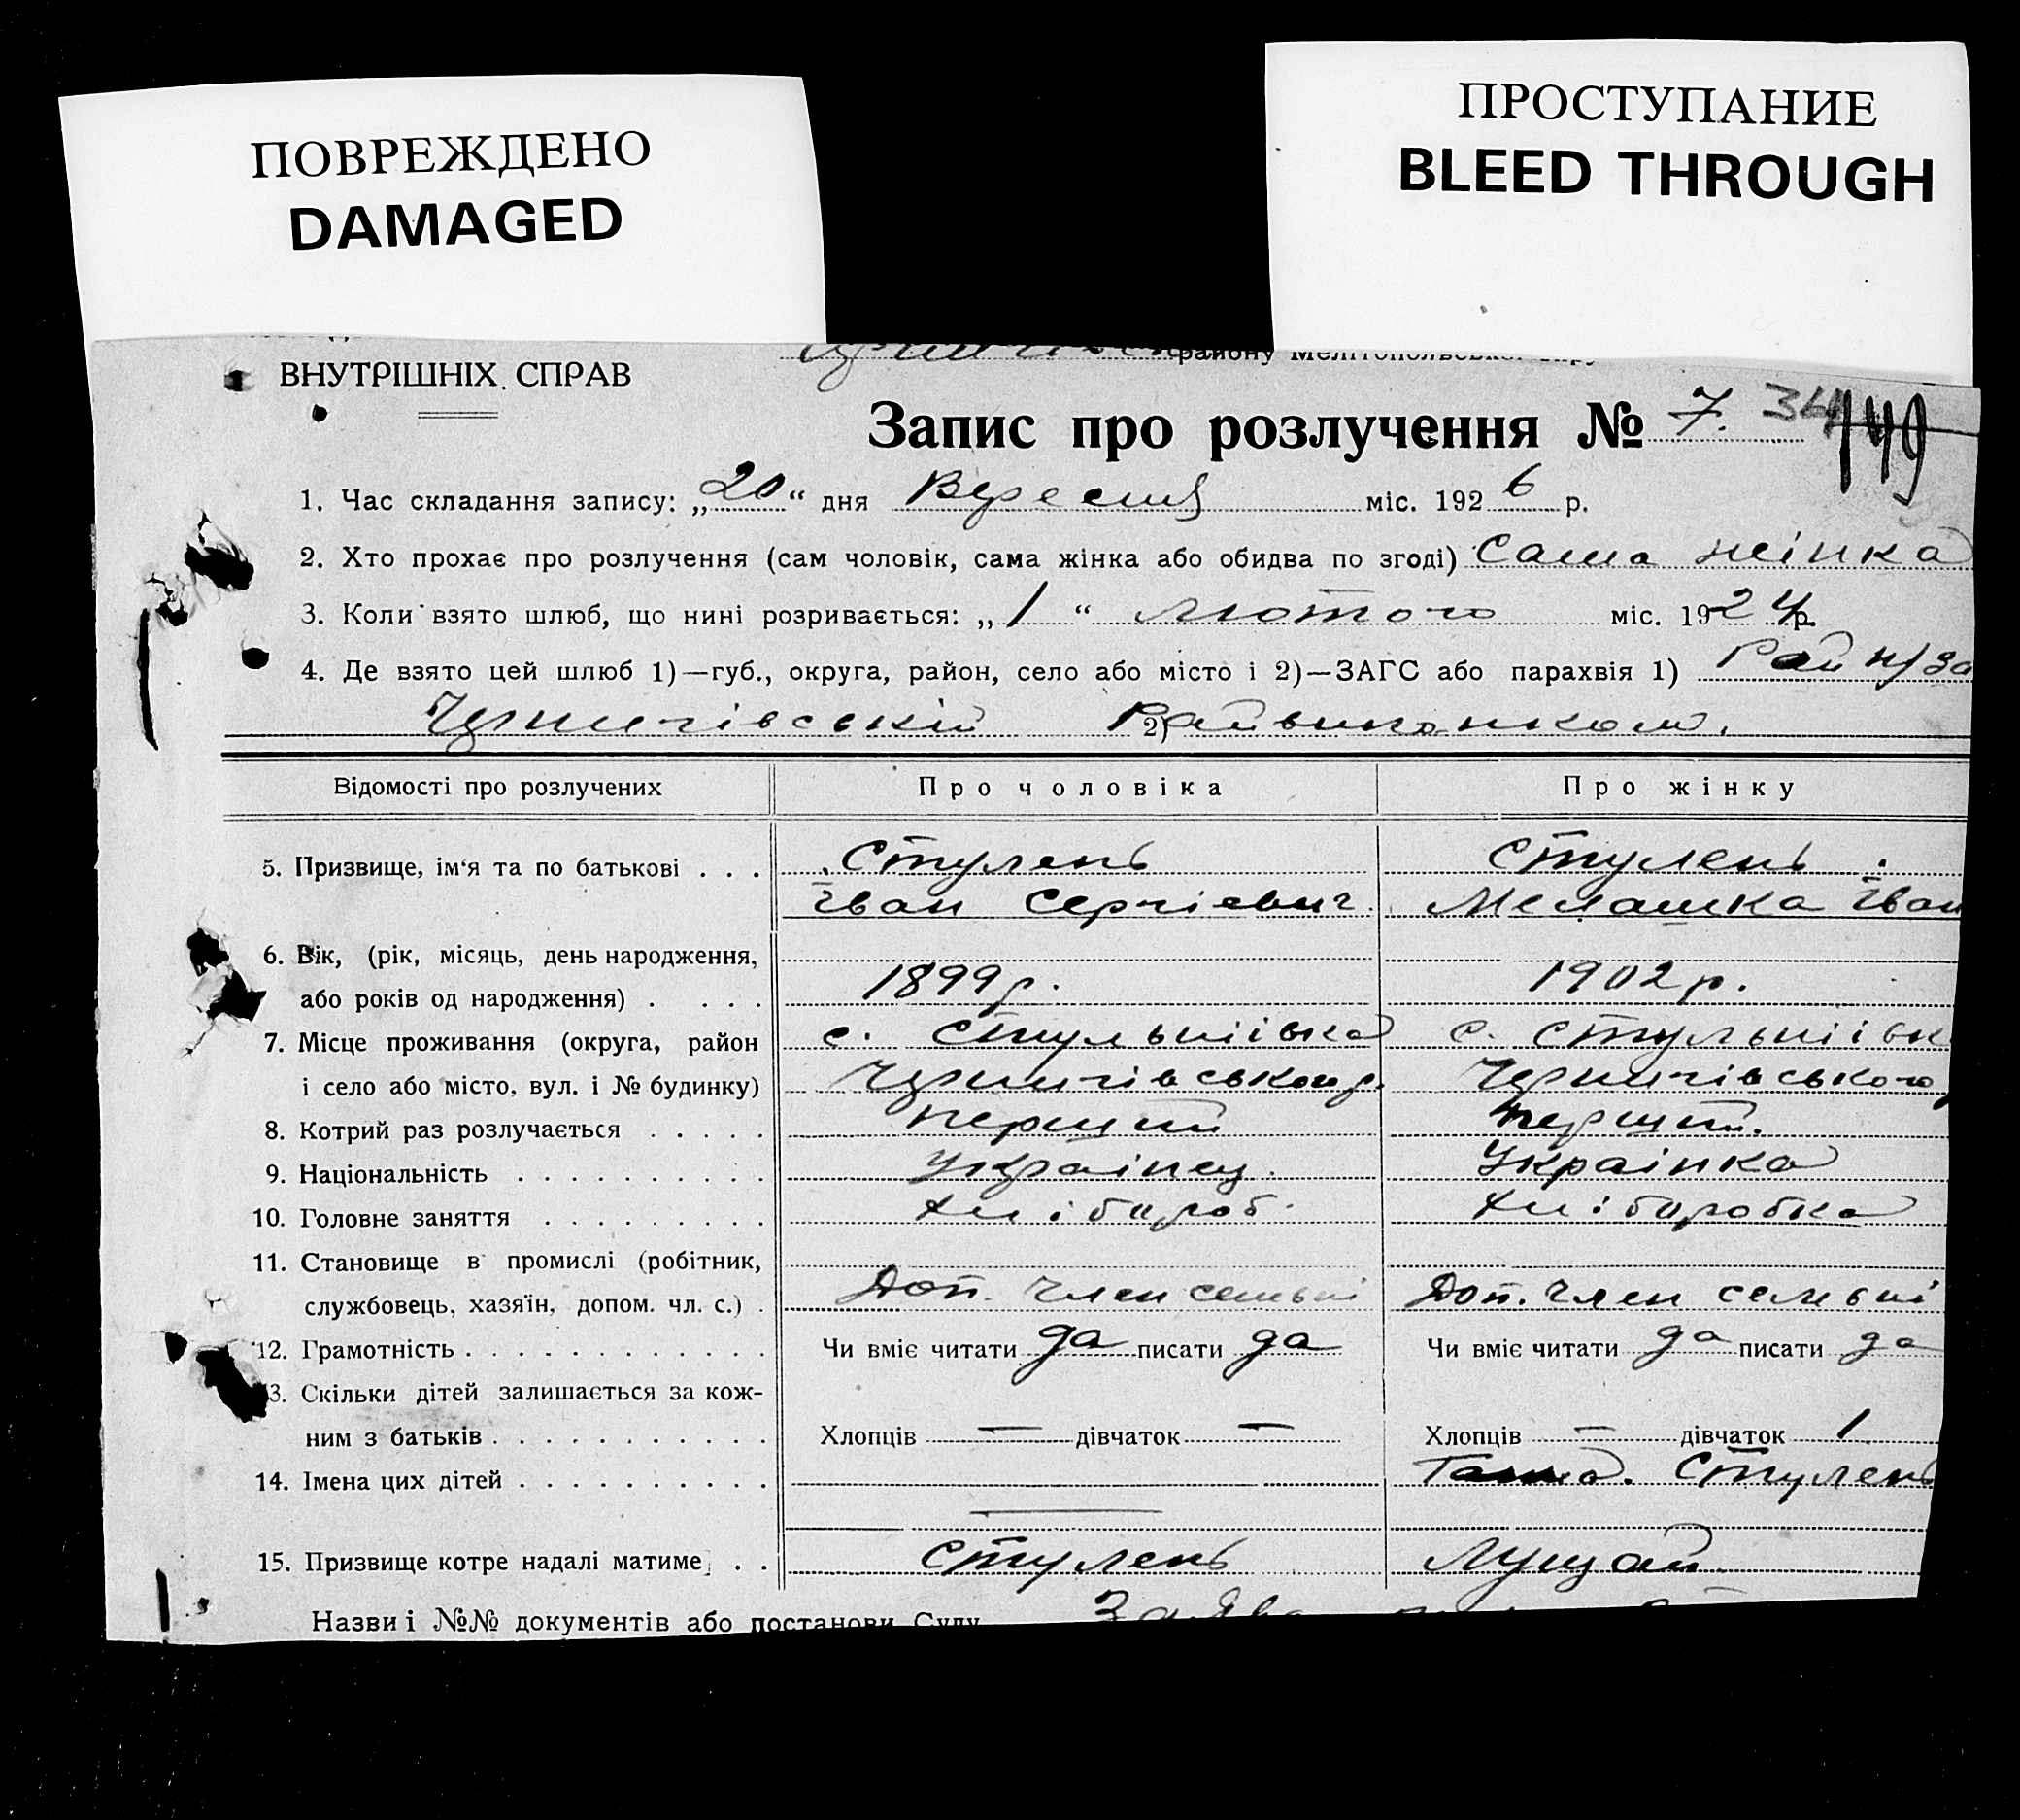 ПОВРЕЖДЕНО
DAMAGED
ПРОСТУПАНИЕ
BLEED THROUGH
ВНУТРІШНІХ СПРАВ
району Мелітопольської
Запис про розлучення № 7. 34 149
1. Час складання запису: „20“ дня Вересня міс. 1926 р.
2. Хто прохає про розлучення (сам чоловік, сама жінка або обидва по згоді) Сама жінка
3. Коли взято шлюб, що нині розривається: „1“ лютого міс. 1924 р.
4. Де взято цей шлюб 1)—губ., округа, район, село або місто і 2)—ЗАГС або парахвія 1)
Чернигівській 2) Райвиконком.
Відомості про розлучених Про чоловіка Про жінку
5. Призвище, ім'я та по батькові . . . Стулень Стулень
Іван Сергієвич Мелашка Іван
6. Вік, (рік, місяць, день народження,
або років од народження) . . . . 1899 р. 1902 р.
7. Місце проживання (округа, район с. Стульніівка с. Стульніівк
і село або місто, вул. і № будинку) Чернигівського р. Чернигівського
8. Котрий раз розлучається . . . . . перший перший.
9. Національність . . . . . . . . . . Українец. Українка
10. Головне заняття . . . . . . . . . Хлібороб. Хліборобка
11. Становище в промислі (робітник,
службовець, хазяїн, допом. чл. с.) . Доп. член семьні Доп. член семьні
12. Грамотність . . . . . . . . . . . . Чи вміє читати да писати да Чи вміє читати да писати да
13. Скільки дітей залишається за кож-
ним з батьків . . . . . . . . . . . Хлопців — дівчаток — Хлопців — дівчаток 1
14. Імена цих дітей . . . . . . . . . . Ганна. Стулень
15. Призвище котре надалі матиме . . Стулень Лущай.
Назви і №№ документів або постанови Суду